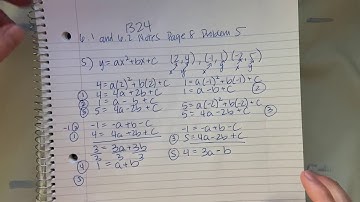 1324
6.1 and 6.2 Notes Page 8 Problem 5
5) y=ax²+bx+c (2,4), (-1,1) (-2,5)
x y x y x y
4=a(2)²+b(2)+c 1=a(-1)²+b(-1)+c
① 4=4a+2b+c 1=a-b+c ②
② 1=a-b+c 5=a(-2)²+b(-2)+c
③ 5=4a-2b+c 5=4a-2b+c ③
-1② -1=-a+b-c -1=-a+b-c
① 4=4a+2b+c ③ 5=4a-2b+c
3/3=3a/3+3b/3 ⑤ 4=3a-b
④ 1=a+b
⑤